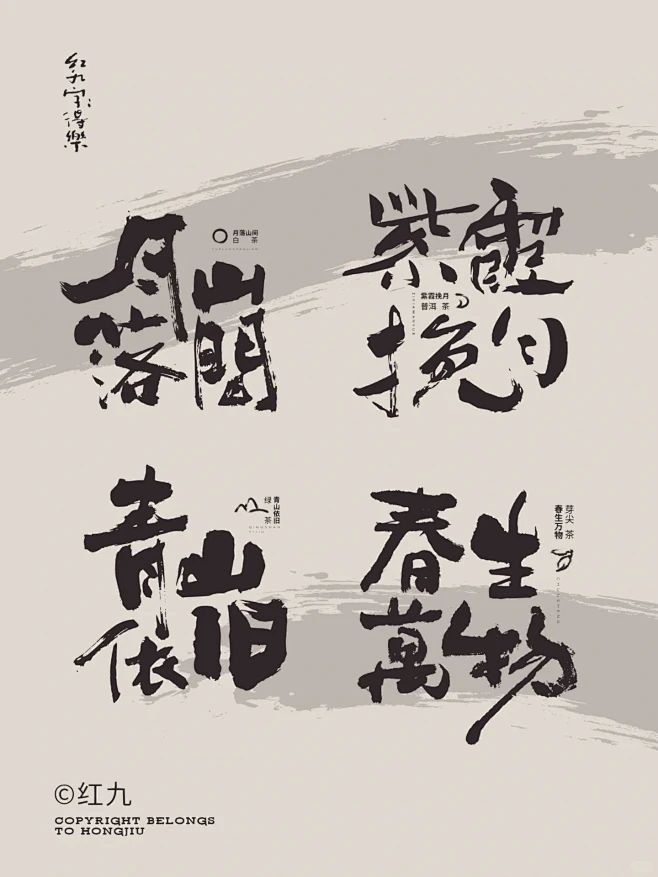 红九字得樂
月落
山間
月落山间
白 茶
紫霞
挽月
紫霞挽月
普洱 茶
青山
依旧
青山依旧
绿 茶
QINGSHAN
YIJIU
春生
萬物
春生万物
芽尖 茶
©红九
COPYRIGHT BELONGS
TO HONGJIU